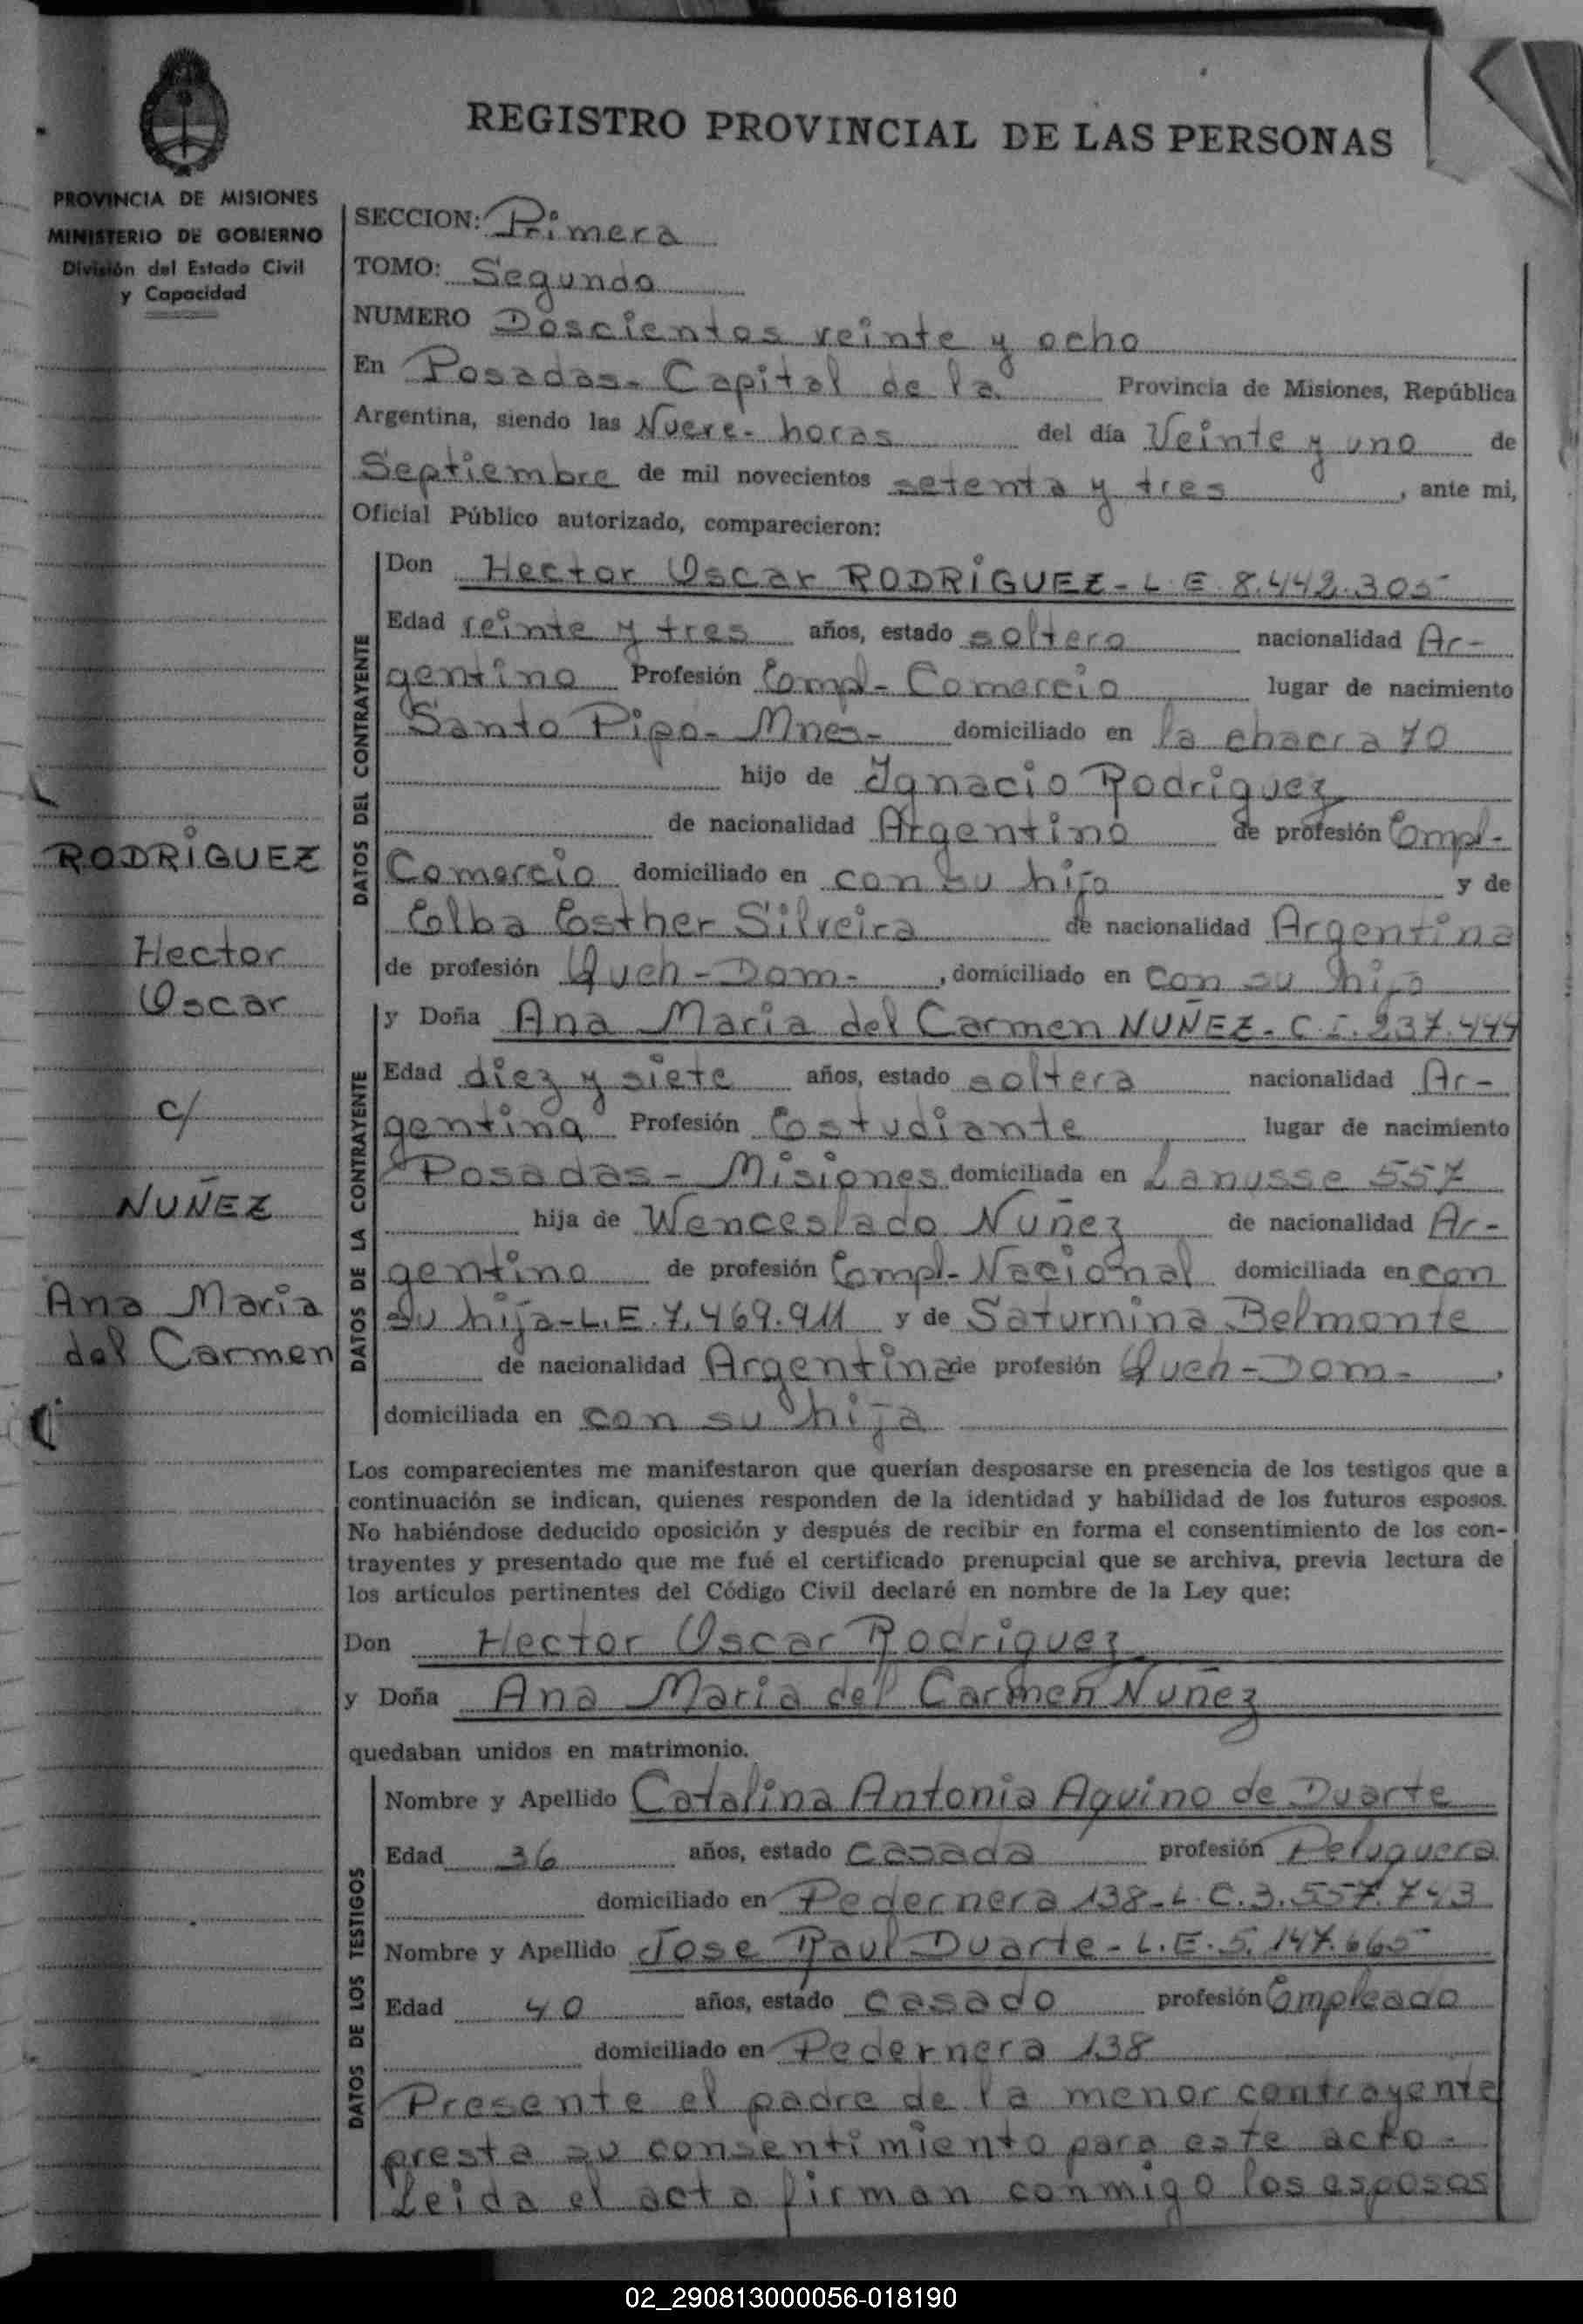 REGISTRO PROVINCIAL DE LAS PERSONAS
PROVINCIA DE MISIONES
MINISTERIO DE GOBIERNO
División del Estado Civil
y Capacidad
RODRÍGUEZ
Hector
Oscar
c/
NUÑEZ
Ana Maria
del Carmen
SECCION: Primera
TOMO: Segundo
NUMERO Doscientos veinte y ocho
En Posadas- Capital de la Provincia de Misiones, República
Argentina, siendo las Nueve- horas del día Veinte y uno de
Septiembre de mil novecientos setenta y tres, ante mi,
Oficial Público autorizado, comparecieron:
DATOS DEL CONTRAYENTE
Don Hector Oscar RODRÍGUEZ- L.E. 8.442.305
Edad veinte y tres años, estado soltero nacionalidad Ar-
gentino Profesión Empl- Comercio lugar de nacimiento
Santo Pipó- Mnes- domiciliado en la chacra 70
hijo de Ignacio Rodriguez
de nacionalidad Argentino de profesión Empl-
Comercio domiciliado en con su hijo y de
Elba Esther Silveira de nacionalidad Argentina
de profesión Queh-Dom-, domiciliado en con su hijo
DATOS DE LA CONTRAYENTE
y Doña Ana Maria del Carmen NUÑEZ- C.I. 237.444
Edad diez y siete años, estado soltera nacionalidad Ar-
gentina Profesión Estudiante lugar de nacimiento
Posadas- Misiones domiciliada en Lanusse 557
hija de Wenceslado Nuñez de nacionalidad Ar-
gentino de profesión Empl- Nacional domiciliada en con
su hija-L.E. 7.469.911 y de Saturnina Belmonte
de nacionalidad Argentina de profesión Queh-Dom-,
domiciliada en con su hija
Los comparecientes me manifestaron que querían desposarse en presencia de los testigos que a
continuación se indican, quienes responden de la identidad y habilidad de los futuros esposos.
No habiéndose deducido oposición y después de recibir en forma el consentimiento de los con-
trayentes y presentado que me fué el certificado prenupcial que se archiva, previa lectura de
los artículos pertinentes del Código Civil declaré en nombre de la Ley que:
Don Hector Oscar Rodriguez
y Doña Ana Maria del Carmen Nuñez
quedaban unidos en matrimonio.
DATOS DE LOS TESTIGOS
Nombre y Apellido Catalina Antonia Aquino de Duarte
Edad 36 años, estado casada profesión Peluquera
domiciliado en Pedernera 138-L.C.3.557.743
Nombre y Apellido Jose Raul Duarte- L.E. 5.147.665
Edad 40 años, estado casado profesión Empleado
domiciliado en Pedernera 138
Presente el padre de la menor contrayente
presta su consentimiento para este acto-
Leida el acta firman conmigo los esposos
02_290813000056-018190